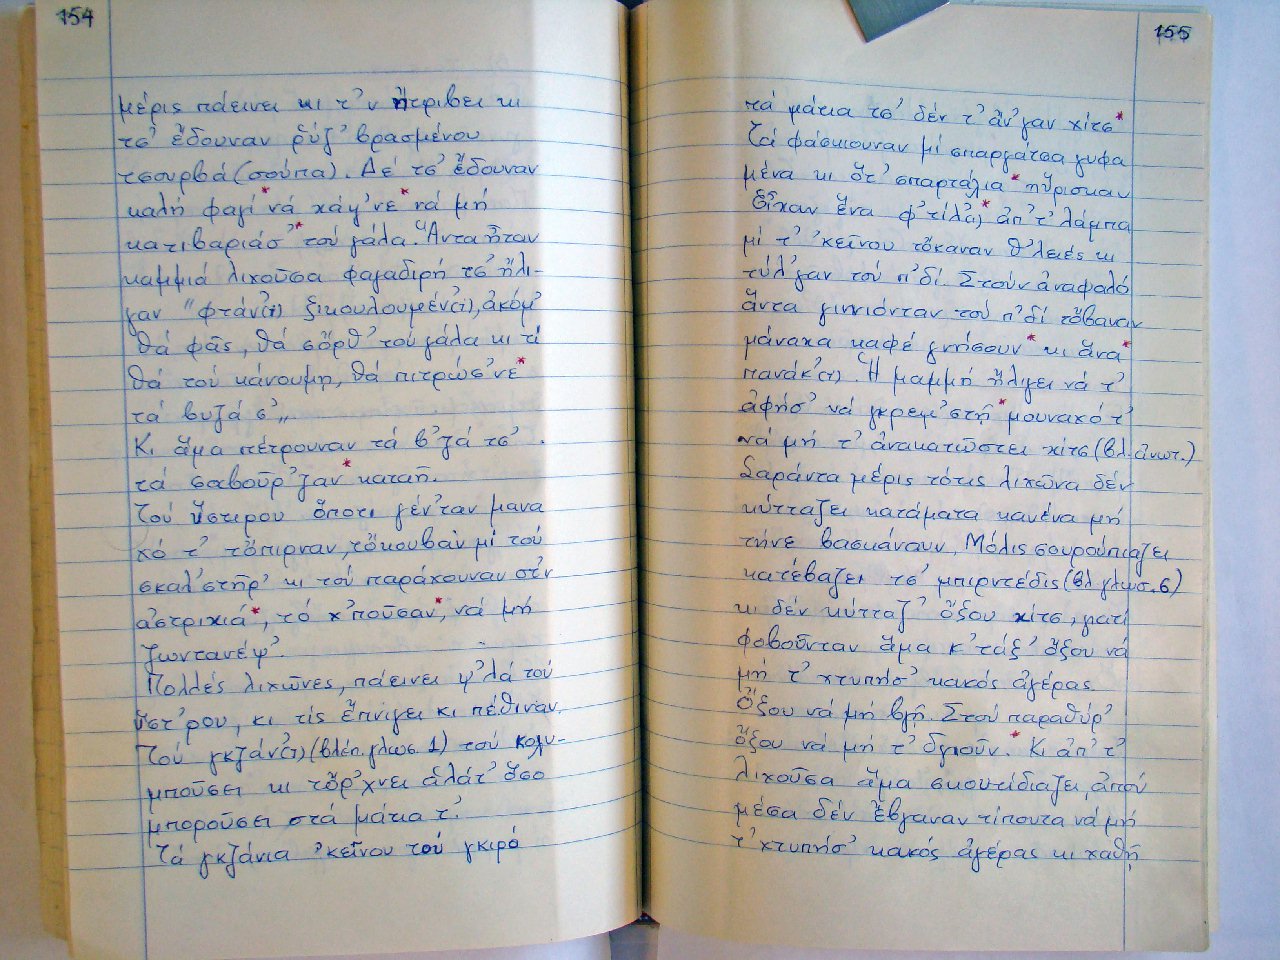 154
μέρις πάεινει κι τ᾿ν ἤτριβει κι
τσ᾿ ἔδουναν ρύζ᾿ βρασμένου
τσουρβά (σούπα). Δέ τσ᾿ ἔδουναν
καλή φαγί* νά χάψ᾿νε* νά μή
κατιβαριάσ᾿* τού γάλα. Ἅντα ἦταν
καμμιά λιχοῦσα φαγαδιρή τσ᾿ ἤλι-
γαν "φτάν(ι) ξικουλουμέν(ι), ἀκόμ᾿
θά φᾶς, θά σὄρθ᾿ τού γάλα κι τί
θά τού κάνουμη, θά πιτρώσ᾿νε*
τά βυζά σ᾿„
Κι ἅμα πέτρουναν τά β᾿ζά τσ᾿.
τά σαβοῦρ᾿ζαν* καταῆ.
Τού ὕστιρου ὅποτι γέν᾿ταν μανα
χό τ᾿ τὄπιρναν, τὄκουβαν μί τού
σκαλ᾿στῆρ᾿ κι τού παράχουναν στ᾿ν
ἀστριχιά*, τό χ᾿ποῦσαν*, νά μή
ζωντανέψ᾿.
Πολλές λιχῶνες, πάεινει ψ᾿λά τού
ὕστ᾿ρου, κι τίς ἔπνιγει κι πέθιναν.
Τού γκζάν(ι) (βλέπ. γλωσ. 1) τού κολυ-
μποῦσει κι τὄρ᾿χνει ἁλάτ᾿ ὅσο
μποροῦσει στά μάτια τ᾿.
Τά γκζάνια ᾿κεῖνου τού γκιρό
155
τά μάτια τσ᾿ δέν τ᾿ ἄν᾿γαν χίτσ*
Τά φάσκιουναν μί σπαργάτσα γυφα
μένα κι ὅτ᾿ σπαρτάλια* ηὕρισκαν
Εἶχαν ἕνα φ᾿τίλ(ι)* ἀπ᾿ τ᾿ λάμπα
μί τ᾿ ᾿κεῖνου τὄκαναν θ᾿λειές κι
τύλ᾿γαν τού π᾿δί. Στούν ἀναφαλό
ἅντα γιννιόνταν τού π᾿δί τὄβαναν
μάναχα καφέ γνήσουν* κι ἄνα*
πανάκ(ι). Ἡ μαμμή ἤλιγει νά τ᾿
ἀφήσ᾿ νά γκρεμ᾿στῆ* μουναχό τ᾿
νά μή τ᾿ ἀνακατῶστει χίτσ (βλ. ἀνωτ.)
Σαράντα μέρις τότις λιχῶνα δέν
κύτταζει κατάματα κανένα μή
τήνε βασκάνουν. Μόλις σουρούπιαζει
κατέβαζει τσ᾿ μπιρντέδις (βλ γλωσ. 6)
κι δέν κύτταζ᾿ ὄξου χίτσ, γιατί
φοβοῦνταν ἅμα κ᾿τάξ᾿ ὄξου νά
μή τ᾿ χτυπήσ᾿ κακός ἀγέρας.
Ὄξου νά μή βγῆ. Στού παραθύρ᾿
ὄξου νά μή τ᾿ δγιοῦν.* Κι ἀπ᾿ τ᾿
λιχοῦσα ἅμα σκουτίδιαζει, ἀπού
μέσα δέν ἔβγαναν τίπουτα νά μή
τ᾿ χτυπήσ᾿ κακός ἀγέρας κι χαθῆ